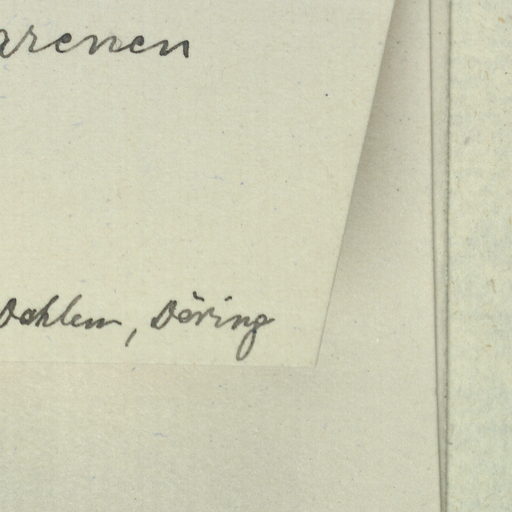 arenen
Dahlem, Döring